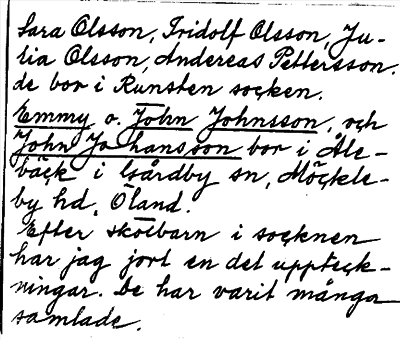 Sara Olsson, Fridolf Olsson, Ju-
lia Olsson, Andereas Pettersson.
de bor i Runsten socken.
Emmy o. John Johnsson, och
John Johansson bor i Åle-
bäck i Gårdby sn, Möckle-
by hd, Öland.
Efter skolbarn i socknen
har jag jort en del uppteck-
ningar. De har varit många
samlade.